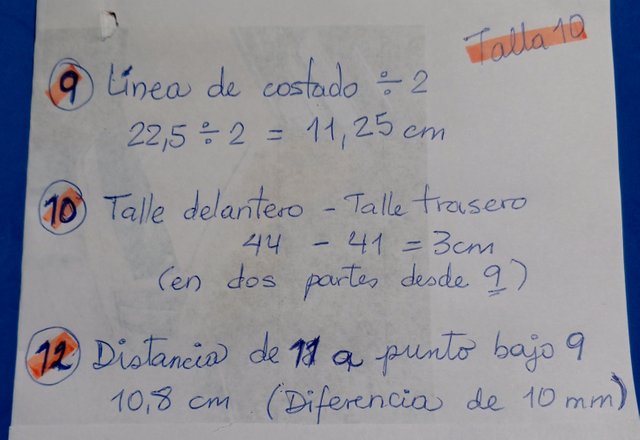 Talla 10
9 Línea de costado ÷ 2
22,5 ÷ 2 = 11,25 cm
10 Talle delantero - Talle trasero
44 - 41 = 3cm
(en dos partes desde 9)
12 Distancia de 11 a punto bajo 9
10,8 cm (Diferencia de 10 mm)